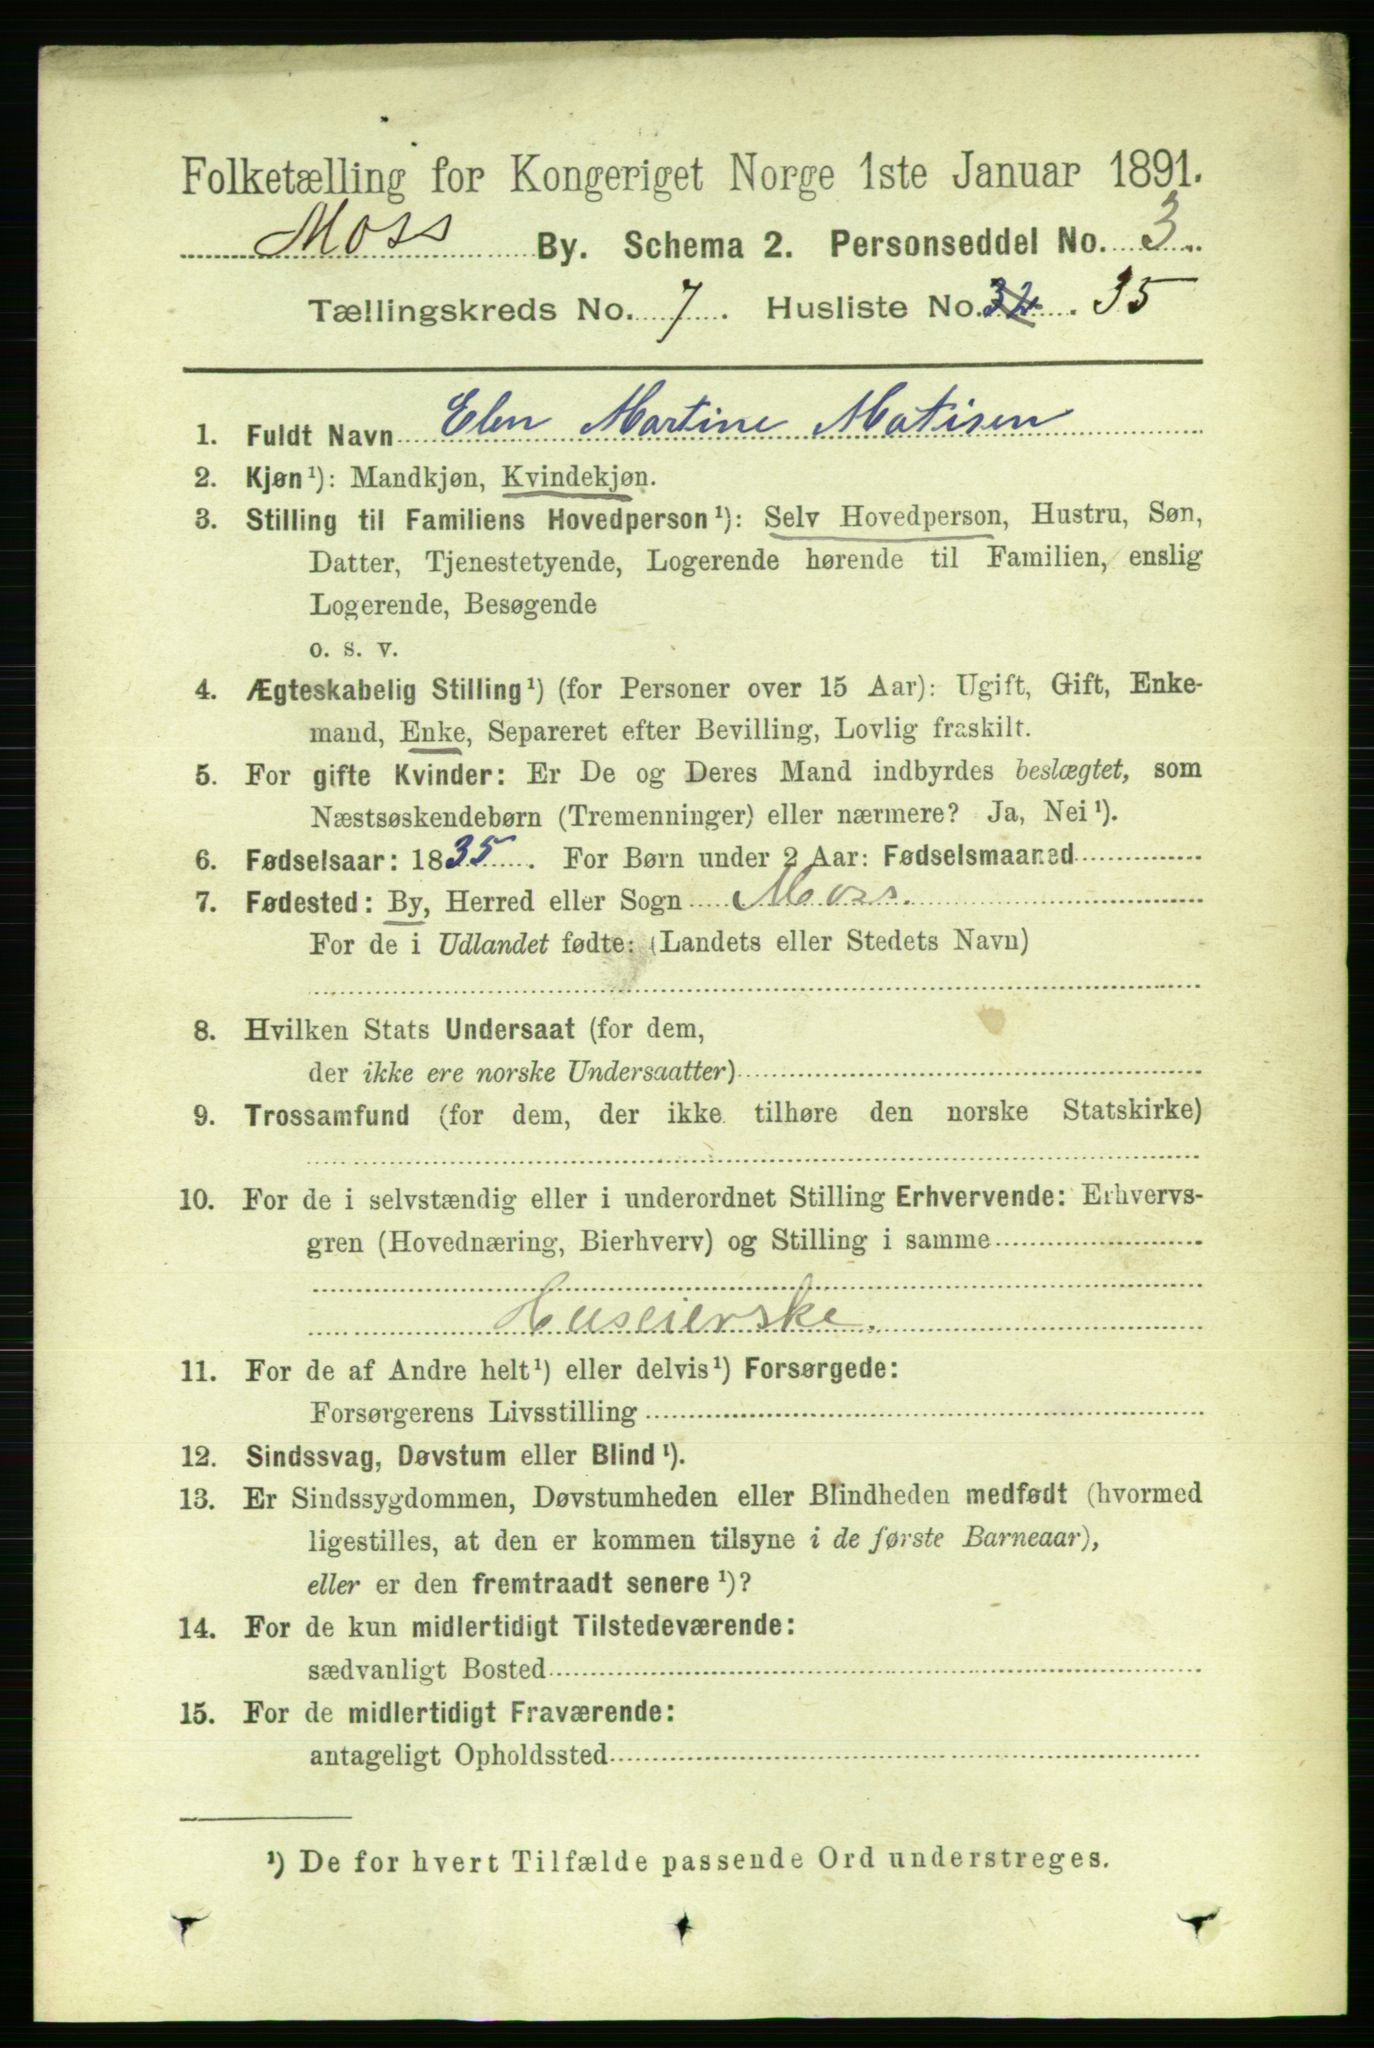 Folketælling for Kongeriget Norge 1ste Januar 1891.
Moss By. Schema 2. Personseddel No. 3.
Tællingskreds No. 7. Husliste No. 32. 35
1. Fuldt Navn Elen Martine Matisen
2. Kjøn¹): Mandkjøn, Kvindekjøn.
3. Stilling til Familiens Hovedperson¹): Selv Hovedperson, Hustru, Søn,
Datter, Tjenestetyende, Logerende hørende til Familien, enslig
Logerende, Besøgende
o. s. v.
4. Ægteskabelig Stilling¹) (for Personer over 15 Aar): Ugift, Gift, Enke-
mand, Enke, Separeret efter Bevilling, Lovlig fraskilt.
5. For gifte Kvinder: Er De og Deres Mand indbyrdes beslægtet, som
Næstsøskendebørn (Tremenninger) eller nærmere? Ja, Nei¹).
6. Fødselsaar: 1835. For Børn under 2 Aar: Fødselsmaaned
7. Fødested: By, Herred eller Sogn Moss.
For de i Udlandet fødte: (Landets eller Stedets Navn)
8. Hvilken Stats Undersaat (for dem,
der ikke ere norske Undersaatter)
9. Trossamfund (for dem, der ikke tilhøre den norske Statskirke)
10. For de i selvstændig eller i underordnet Stilling Erhvervende: Erhvervs-
gren (Hovednæring, Bierhverv) og Stilling i samme
Huseierske.
11. For de af Andre helt¹) eller delvis¹) Forsørgede:
Forsørgerens Livsstilling
12. Sindssvag, Døvstum eller Blind¹).
13. Er Sindssygdommen, Døvstumheden eller Blindheden medfødt (hvormed
ligestilles, at den er kommen tilsyne i de første Barneaar),
eller er den fremtraadt senere¹)?
14. For de kun midlertidigt Tilstedeværende:
sædvanligt Bosted
15. For de midlertidigt Fraværende:
antageligt Opholdssted
¹) De for hvert Tilfælde passende Ord understreges.